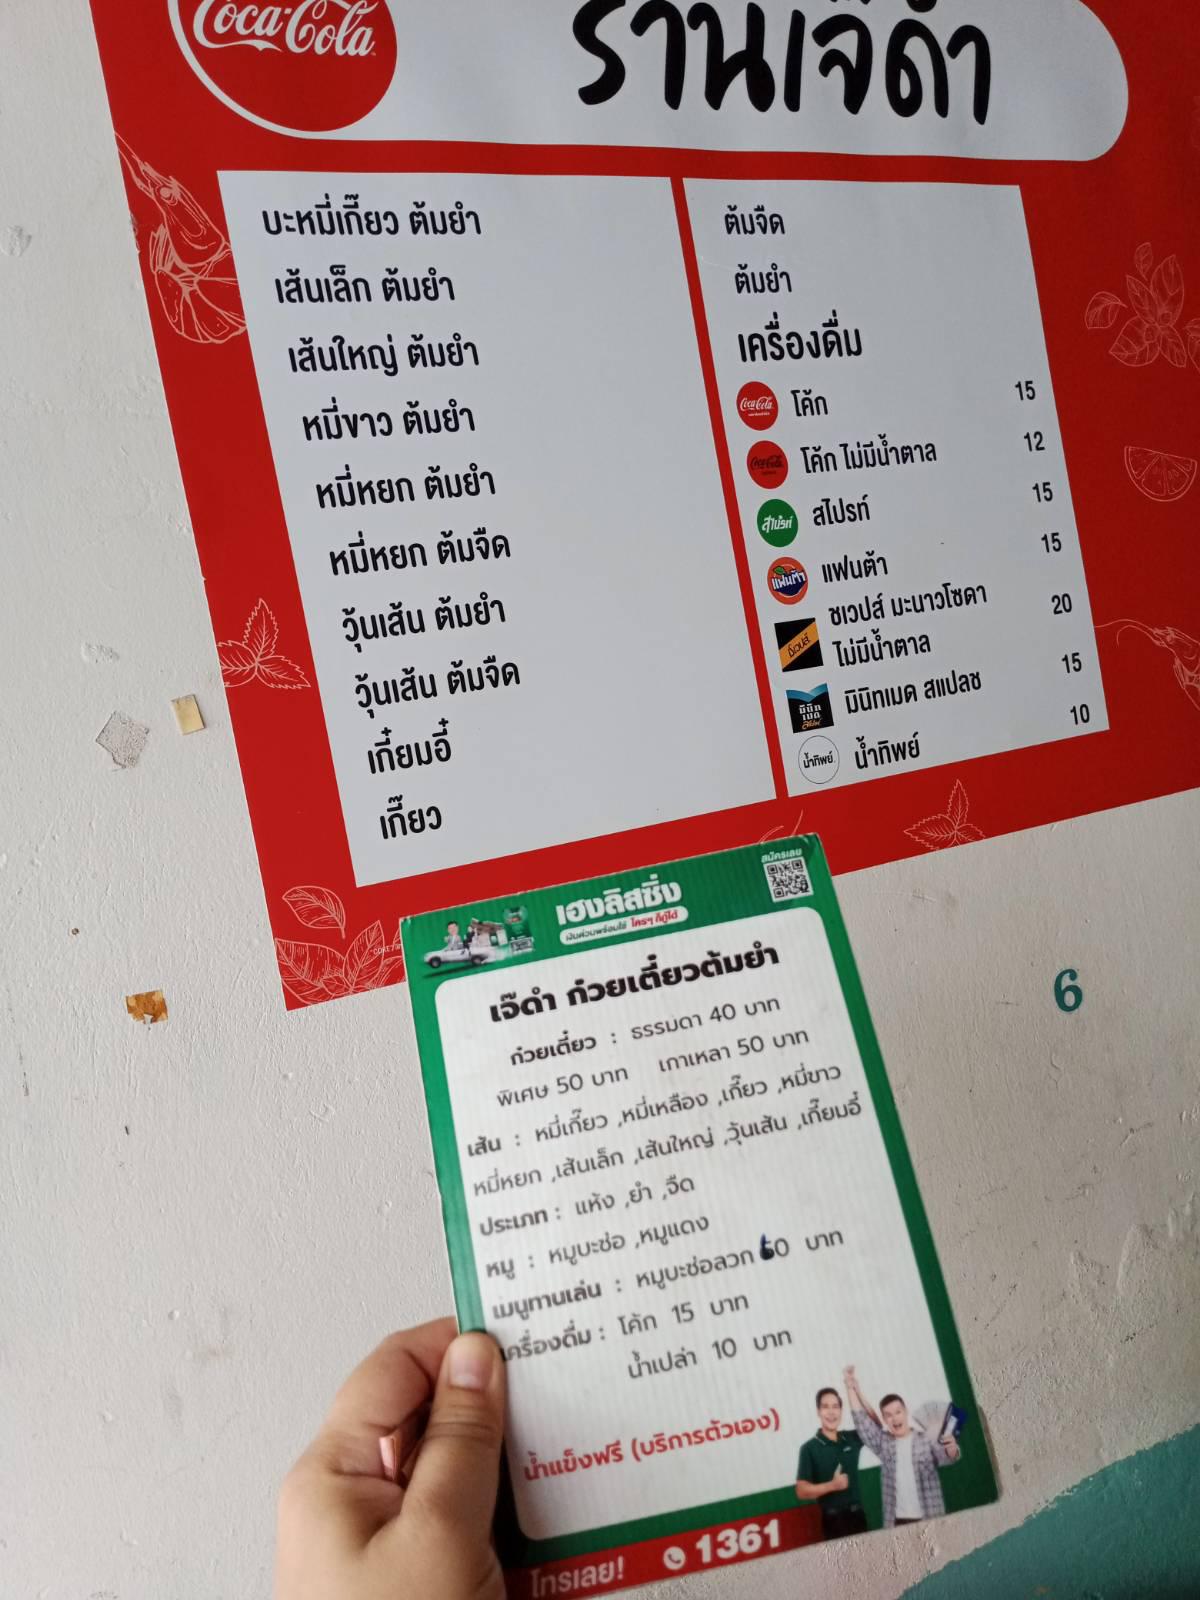 Coca-Cola
ร้านเจ๊ดำ
บะหมี่เกี๊ยว ต้มยำ
เส้นเล็ก ต้มยำ
เส้นใหญ่ ต้มยำ
หมี่ขาว ต้มยำ
หมี่หยก ต้มยำ
หมี่หยก ต้มจืด
วุ้นเส้น ต้มยำ
วุ้นเส้น ต้มจืด
เกี๋ยมอี๋
เกี๊ยว
ต้มจืด
ต้มยำ
เครื่องดื่ม
Coca-Cola โค้ก 15
Coca-Cola โค้ก ไม่มีน้ำตาล 12
สไปรท์ สไปรท์ 15
แฟนต้า แฟนต้า 15
ชเวปส์ ชเวปส์ มะนาวโซดา
ไม่มีน้ำตาล 20
มินิทเมด สแปลช มินิทเมด สแปลช 15
น้ำทิพย์ น้ำทิพย์ 10
เฮงลิสซิ่ง
เงินด่วนพร้อมใช้ ใครๆ ก็กู้ได้
สมัครเลย
เจ๊ดำ ก๋วยเตี๋ยวต้มยำ
ก๋วยเตี๋ยว : ธรรมดา 40 บาท
พิเศษ 50 บาท เกาเหลา 50 บาท
เส้น : หมี่เกี๊ยว ,หมี่เหลือง ,เกี๊ยว ,หมี่ขาว
หมี่หยก ,เส้นเล็ก ,เส้นใหญ่ ,วุ้นเส้น ,เกี๊ยมอี๋
ประเภท : แห้ง ,ยำ ,จืด
หมู : หมูบะช่อ ,หมูแดง
เมนูทานเล่น : หมูบะช่อลวก 60 บาท
เครื่องดื่ม : โค้ก 15 บาท
น้ำเปล่า 10 บาท
น้ำแข็งฟรี (บริการตัวเอง)
โทรเลย! 1361
6